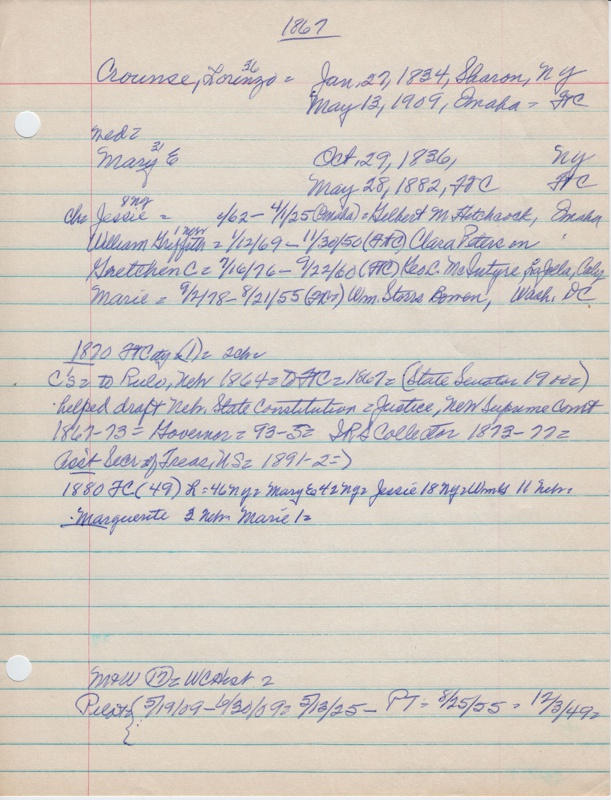 1867
Crounse, Lorenzo = 36 Jan. 27, 1834, Sharon, NY
May 13, 1909, Omaha = FTC
med =
Mary E 31 Oct. 29, 1836, NY
May 28, 1882, FTC FTC
ch= Jessie = 8 NY /62 - 4/1/25 (Omaha) = Gilbert M. Hitchcock, Omaha
William Griffith = 1/12/69 - 11/30/50 (FTC) Clara Peterson "
Gretchen C = 7/16/76 - 9/22/60 (FTC) Geo. C. McIntyre, LaJolla, Calif
Marie = 9/2/78 - 8/21/55 Wm. Storrs Bowen, Wash. DC
1870 FTC (1) = 2 ch =
C's = to Rulo, Nebr 1864 = to FTC = 1867 = (State Senator 1900 =)
helped draft Nebr. State Constitution = Justice, Nebr Supreme Court
1867-73 = Governor = 93-5 = IRS Collector 1873-77 =
Ass't Secr. of Treas, US = 1891-2 =)
1880 FC (49) L = 46 NY = Mary E 42 NY = Jessie 18 NY = Wm 11 Nebr.
Marguerite 3 Nebr. Marie 1 =
M+W (12) = WCHist =
Pilot { 5/19/09 - 6/30/09 = 5/13/25 - PT = 8/25/55 = 12/3/49 =